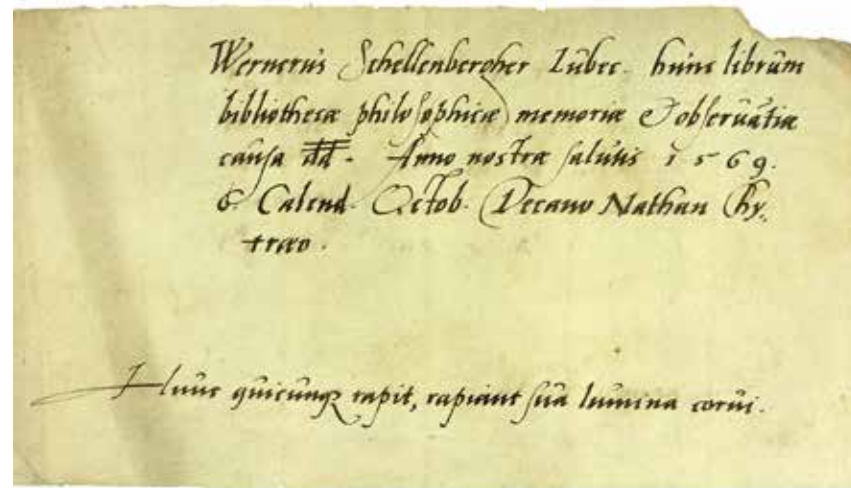 Wernerus Schellenbergher Lubec. hunc librum
bibliothecæ philosophicæ memoriæ & obseruãtiæ
causa dd. Anno nostræ salutis 1569.
6. Calend. Octob. Decano Nathan Chy-
træo.
Hunc quicunq; rapit, rapiant sua lumina corui.